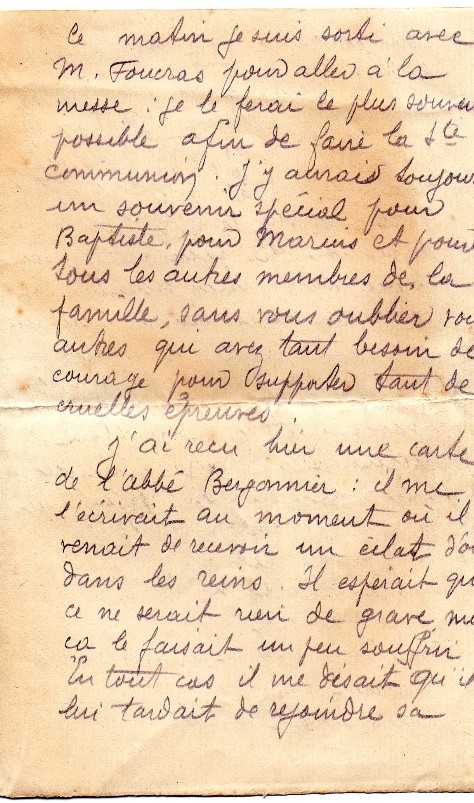 Ce matin je suis sorti avec
M. Foucras pour aller à la
messe : je le ferai le plus souven
possible afin de faire la Ste
communion. J'y aurais toujour
un souvenir spécial pour
Baptiste, pour Marius et pour
tous les autres membres de la
famille, sans vous oublier vou
autres qui avez tant besoin de
courage pour supporter tant de
cruelles épreuves.
J'ai reçu hier une carte
de l'abbé Bergonnier : il me
l'écrivait au moment où il
venait de recevoir un éclat d'o
dans les reins. Il espérait qu
ce ne serait rien de grave ma
ça le faisait un peu souffrir
En tout cas il me disait qu'il
lui tardait de rejoindre sa